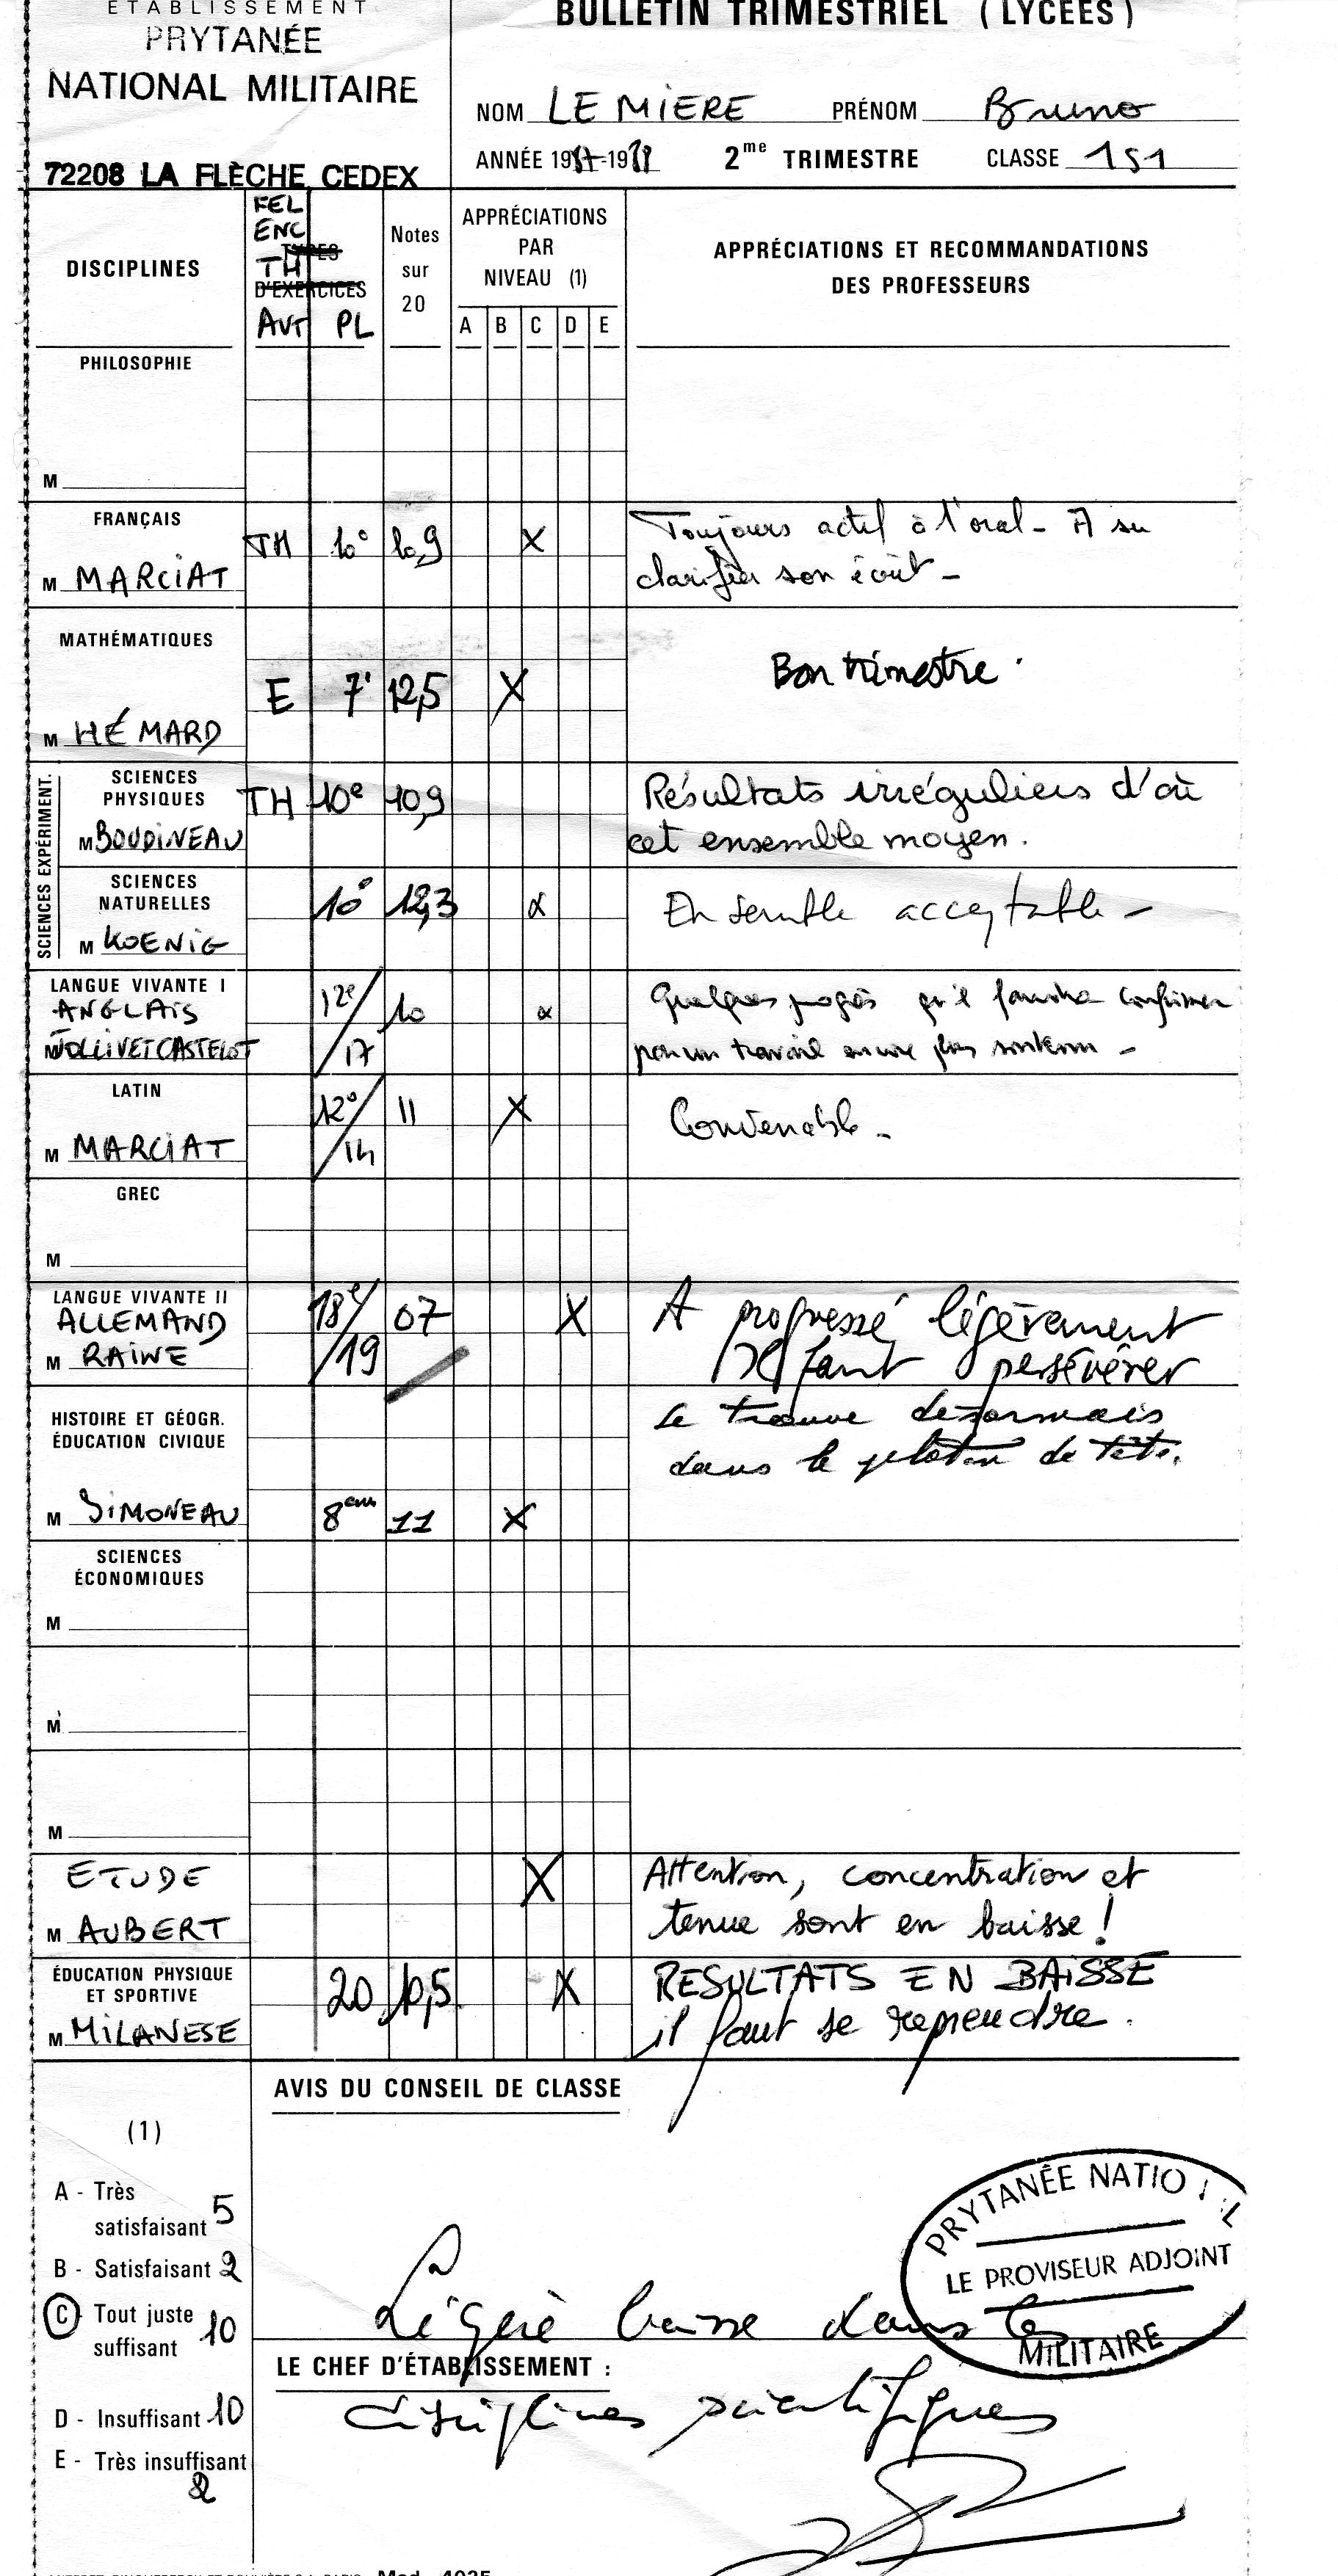 ETABLISSEMENT
PRYTANÉE
NATIONAL MILITAIRE
72208 LA FLÈCHE CEDEX
BULLETIN TRIMESTRIEL (LYCÉES)
NOM LE MIERE PRÉNOM Bruno
ANNÉE 1987-1988 2me TRIMESTRE CLASSE 1S1
DISCIPLINES
FEL
ENC
TH
TYPES
D'EXERCICES
AVT PL
Notes
sur
20
APPRÉCIATIONS
PAR
NIVEAU (1)
A B C D E
APPRÉCIATIONS ET RECOMMANDATIONS
DES PROFESSEURS
PHILOSOPHIE
M
FRANÇAIS
M MARCIAT
TH 10° 10,9 X
Toujours actif à l'oral - A su
clarifier son écrit -
MATHÉMATIQUES
M HÉMARD
E 7' 12,5 X
Bon trimestre.
SCIENCES EXPÉRIMENT.
SCIENCES
PHYSIQUES
M BOUDINEAU
TH 10e 10,9
Résultats irréguliers d'où
cet ensemble moyen.
SCIENCES
NATURELLES
M KOENIG
10° 12,3 X
Ensemble acceptable -
LANGUE VIVANTE I
ANGLAIS
M JOLLIVET CASTELOT
12e/17 10 x
Quelques progrès qu'il faudra confirmer
par un travail encore plus soutenu -
LATIN
M MARCIAT
12°/14 11 X
Convenable -
GREC
M
LANGUE VIVANTE II
ALLEMAND
M RAINE
18e/19 07 X
A progressé légèrement
Il faut persévérer
HISTOIRE ET GÉOGR.
ÉDUCATION CIVIQUE
M SIMONEAU
8em 11 X
Se trouve désormais
dans le peloton de tête.
SCIENCES
ÉCONOMIQUES
M
M
M
ETUDE
M AUBERT
X
Attention, concentration et
tenue sont en baisse !
ÉDUCATION PHYSIQUE
ET SPORTIVE
M MILANESE
20 10,5 X
RESULTATS EN BAISSE
il faut se reprendre.
AVIS DU CONSEIL DE CLASSE
(1)
A - Très
satisfaisant 5
B - Satisfaisant 2
C - Tout juste
suffisant 10
D - Insuffisant 10
E - Très insuffisant
2
Légère baisse dans les
disciplines scientifiques
LE CHEF D'ÉTABLISSEMENT :
PRYTANÉE NATIO L
LE PROVISEUR ADJOINT
MILITAIRE
Mod. 4025